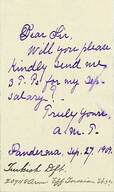 Dear Sir,
Will you please
kindly send me
3 T. Ps. for my Sep.
salary?
Truly yours,
a. m. T.
Panderma, Sep. 27, 1909.
Turkish Dpt.